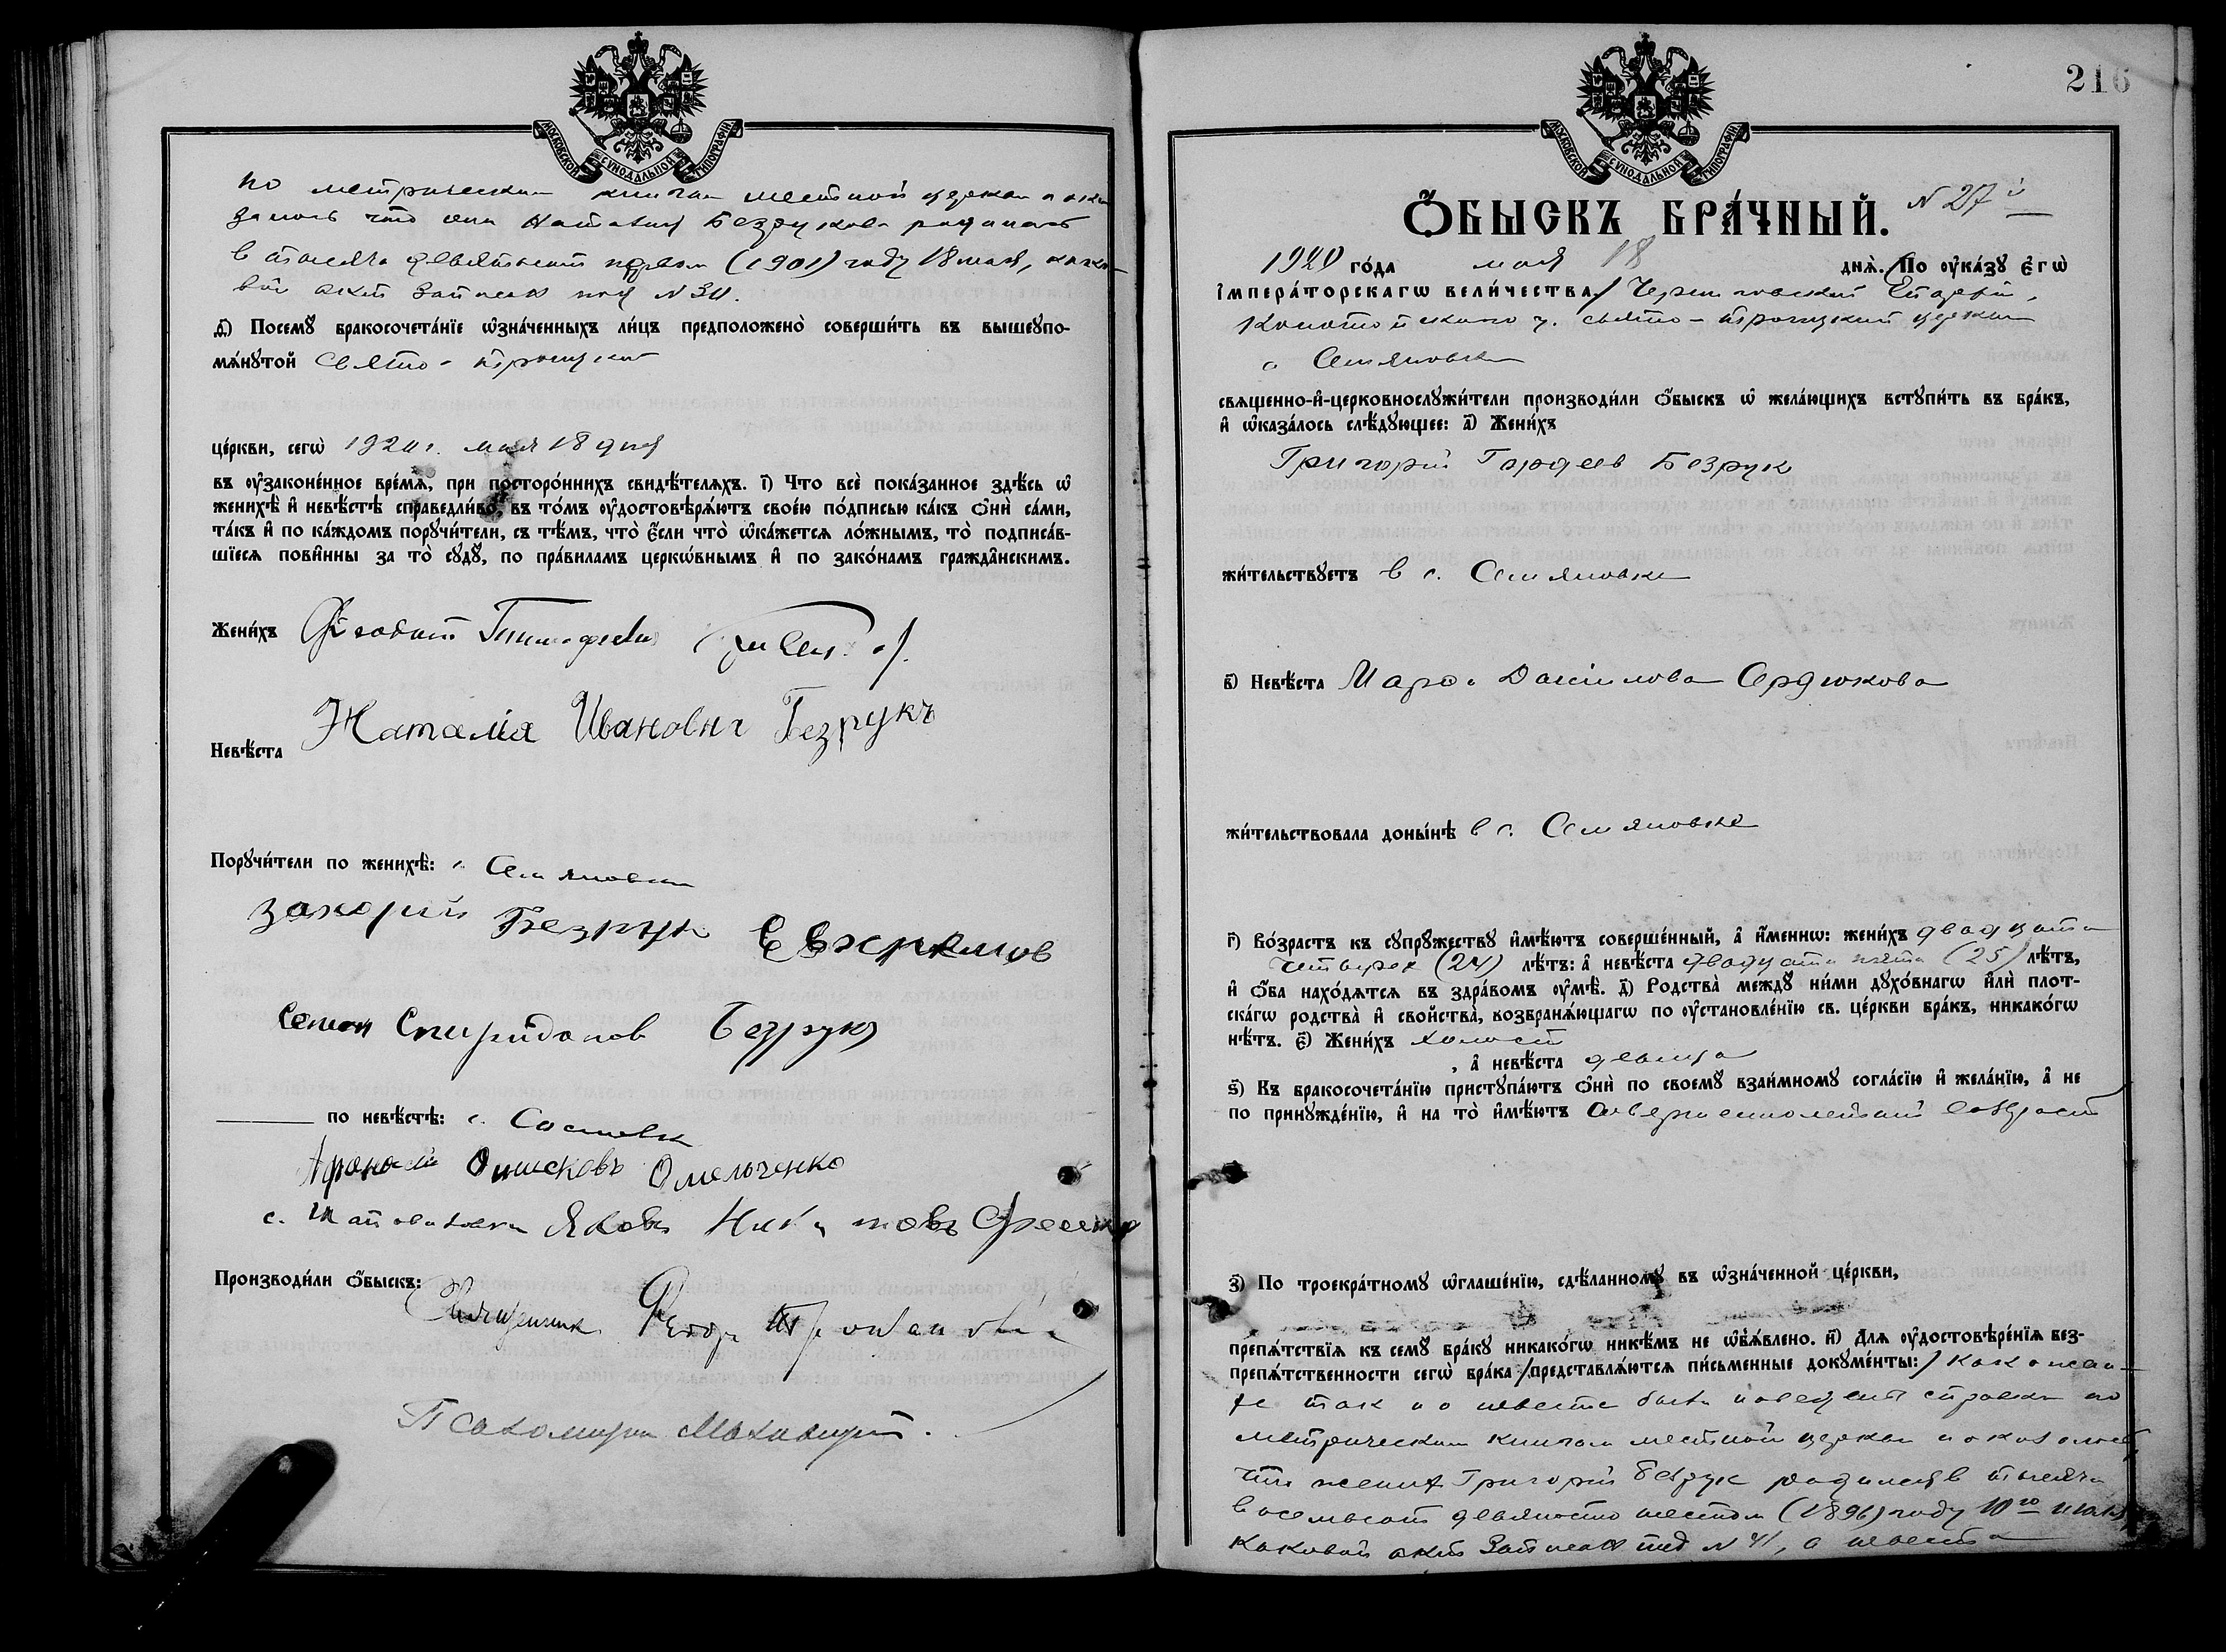 МОСКОВСКОЙ СУНОДАЛЬНОЙ ТИПОГРАФІИ
по метрическим книгам местной церкви оказа
лось что она Наталия Безрукова родилась
в тысяча девятьсот первом (1901) году 18 мая, како
вой акт записан под № 30.
Ѳ҃) Посемꙋ бракосочета́нїе ѡ҆зна́ченныхъ ли́цъ предположено̀ соверши́ть въ вышеꙋпо-
мѧ́нꙋтой Свято-Троицкой
це́ркви, сегѡ̀ 1920 г. мая 18 дня
въ ᲂу҆законе́нное вре́мѧ, при посторо́ннихъ свидѣ́телѧхъ. І҃) Что всѐ пока́занное здѣ́сь ѡ҆
женихѣ̀ и҆ невѣ́стѣ справедли́во, въ то́мъ ᲂу҆достовѣрѧ́ютъ свое́ю по́дписью ка́къ ѻ҆нѝ са́ми,
та́къ и҆ по ка́ждомъ порꙋчи́тели, съ тѣ́мъ, что̀ є҆́сли что̀ ѡ҆ка́жетсѧ ло́жнымъ, то̀ подписа́в-
шїесѧ пови́нны за то̀ сꙋдꙋ̀, по пра́виламъ церкѡ́внымъ и҆ по зако́намъ гражда́нскимъ.
Жени́хъ Феодот Тимофеевич
Невѣ́ста Наталія Ивановна Безрукъ
Порꙋчи́тели по женихѣ̀: с. Семяновки
Захорий Безрук
Семен Спиридонов Безрукъ
по невѣ́стѣ: с.
Афонасій Омельченко
с. Яковъ
Производи́ли ѻ҆́быскъ:
Священник Федор
Псаломщик
216
МОСКОВСКОЙ СУНОДАЛЬНОЙ ТИПОГРАФІИ
Ѻ҆́БЫСКЪ БРА́ЧНЫЙ. № 27й
1920 го́да мая 18 днѧ̀. (По ᲂу҆ка́зꙋ є҆гѡ̀
і҆мпера́торскагѡ вели́чества) Черниговской Епархии,
Конотопского у. Свято-Троицкой церкви
с Семяновки
свѧще́нно-и҆-церковнослꙋжи́тели производи́ли ѻ҆́быскъ ѡ҆ жела́ющихъ встꙋпи́ть въ бра́къ,
и҆ ѡ҆каза́лось слѣ́дꙋющее: а҃) Жени́хъ
Григорий Гордеев Безрук
жи́тельствꙋетъ в с. Семяновке
в҃) Невѣ́ста Марфа Данилова Сердюкова
жи́тельствовала доны́нѣ в с. Семяновке
г҃) Во́зрастъ къ сꙋпрꙋ́жествꙋ и҆мѣ́ютъ соверше́нный, а҆ и҆́меннѡ: жени́хъ двадцати
четырех (24) лѣ́тъ: а҆ невѣ́ста двадцати пяти (25) лѣ́тъ,
и҆ ѻ҆́ба нахо́дѧтсѧ въ здра́вомъ ᲂу҆мѣ̀. д҃) Родства̀ междꙋ̀ ни́ми дꙋхо́внагѡ и҆лѝ плот-
ска́гѡ родства̀ и҆ сво́йства, возбранѧ́ющагѡ по ᲂу҆становле́нїю св. це́ркви бра́къ, никако́гѡ
нѣ́тъ. є҃) Жени́хъ холост
, а҆ невѣ́ста девица
ѕ҃) Къ бракосочета́нїю пристꙋпа́ютъ ѻ҆нѝ по своемꙋ̀ взаи́мномꙋ согла́сїю и҆ жела́нїю, а҆ не
по принꙋжде́нїю, и҆ на то̀ и҆мѣ́ютъ совершеннолетний возраст
з҃) По троекра́тномꙋ ѡ҆глаше́нїю, сдѣ́ланномꙋ въ ѡ҆зна́ченной це́ркви,
препѧ́тствїѧ къ семꙋ̀ бра́кꙋ никако́гѡ никѣ́мъ не ѡ҆б̾ѧ́влено. и҃) Для ᲂу҆достовѣре́нїѧ без-
препѧ́тственности сегѡ̀ бра́ка (представлѧ́ютсѧ пи́сьменные докꙋме́нты:) как о жени
хе так и о невесте была наведена справка по
метрическим книгам местной церкви и оказалось,
что жених Григорий Безрук родился в тысяча
восемьсот девяносто шестом (1896) году 10го
каковой акт записан под № 41, а невеста